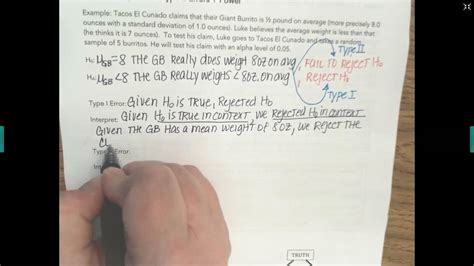 Example: Tacos El Cunado claims that their Giant Burrito is ½ pound on average (more precisely 8.0
ounces with a standard deviation of 1.0 ounces). Luke believes the average weight is less than that
(he thinks it is 7 ounces). To test his claim, Luke goes to Tacos El Cunado and takes a random
sample of 5 burritos. He will test his claim with an alpha level of 0.05.
Type II
H₀: μGB=8 THE GB REAlly dOES WEIGH 8OZ ON AVg, FAIL TO REJECT H₀
Hₐ: μGB<8 THE GB REAlly WEIGHS < 8OZ ON AVg, REJECT H₀
Type I
Type I Error: GIVEN H₀ IS TRUE, REJECTED H₀
Interpret: GIVEN H₀ IS TRUE IN CONTEXT, WE REJECTED H₀ IN CONTEXT
GIVEN THE GB HAS A MEAN WEIGHT OF 8OZ, WE REJECT THE
Error:
TRUTH